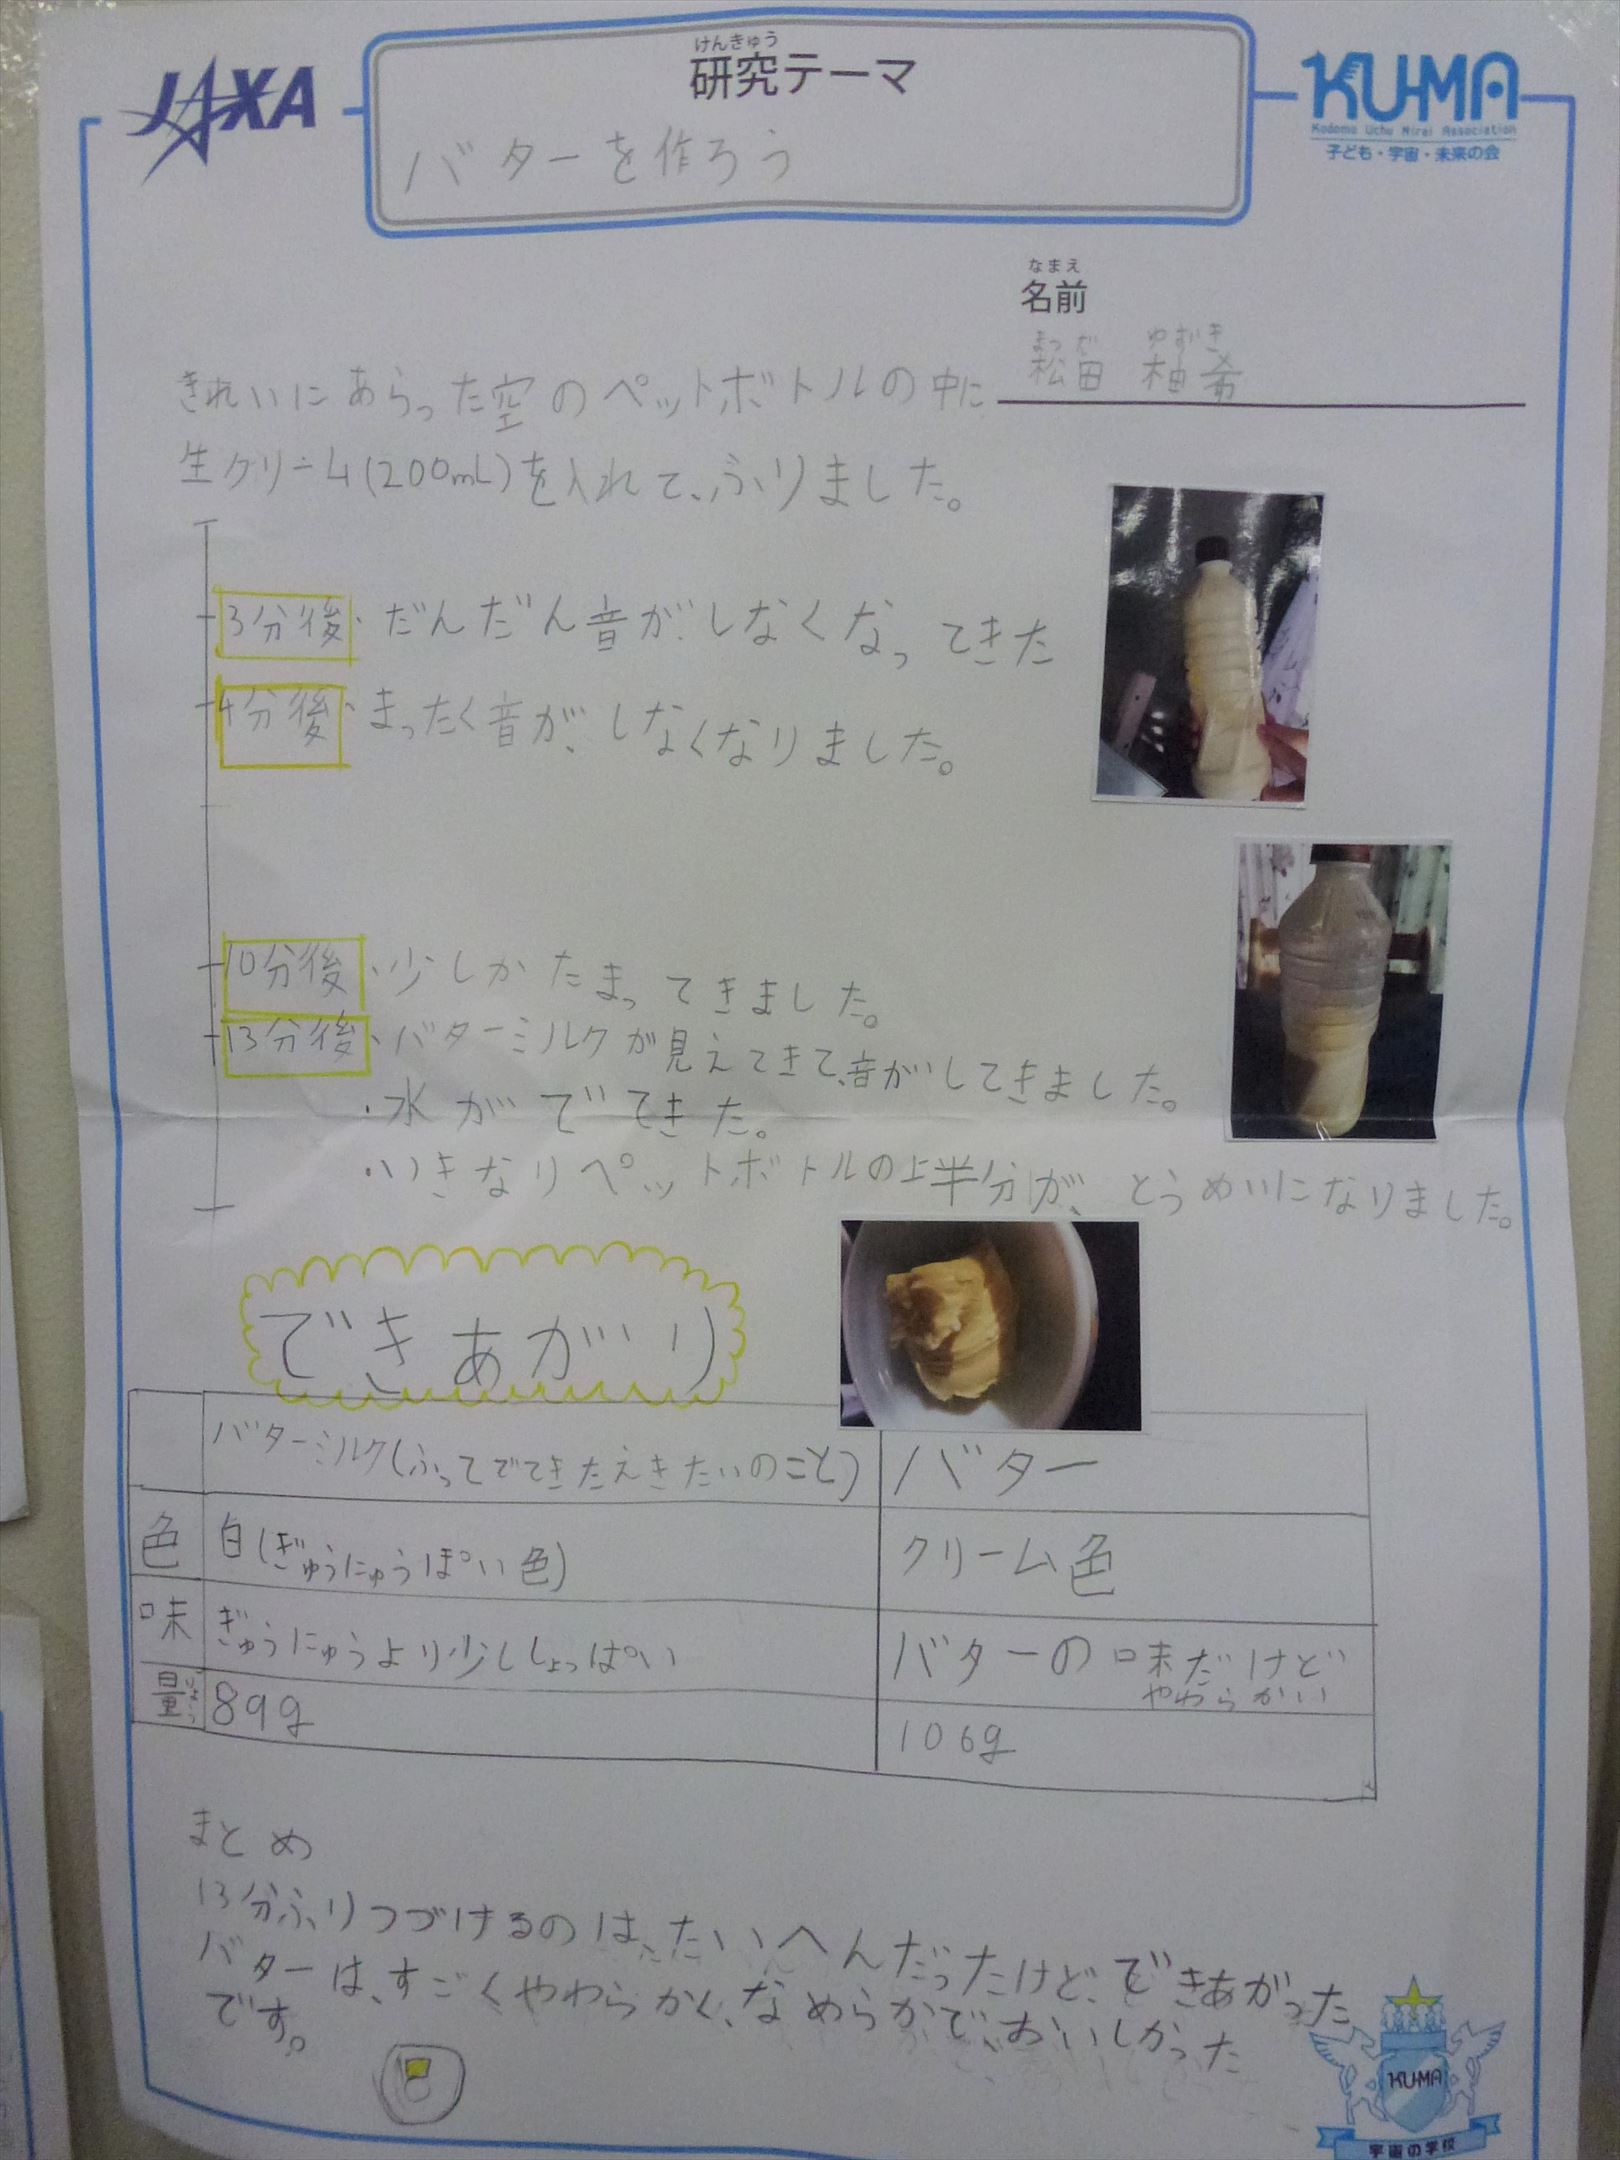 JAXA
けんきゅう
研究テーマ
KU-MA
Kodomo Uchu Mirai Association
子ども・宇宙・未来の会
バターを作ろう
なまえ
名前
まつだ ゆずき
松田 柚希
きれいにあらった空のペットボトルの中に
生クリーム(200mL)を入れて、ふりました。
3分後・だんだん音がしなくなってきた
4分後・まったく音が、しなくなりました。
10分後・少しかたまってきました。
13分後・バターミルクが見えてきて、音がしてきました。
・水がでてきた。
・いきなりペットボトルの上半分が、とうめいになりました。
できあがり
バターミルク(ふってでてきたえきたいのこと) バター
色 白(ぎゅうにゅうぽい色) クリーム色
味 ぎゅうにゅうより少ししょっぱい バターの味だけどやわらかい
量 りょう 89g 106g
まとめ
13分ふりつづけるのは、たいへんだったけど、できあがった
バターは、すごくやわらかく、なめらかで、おいしかった
です。
KU-MA
宇宙の学校